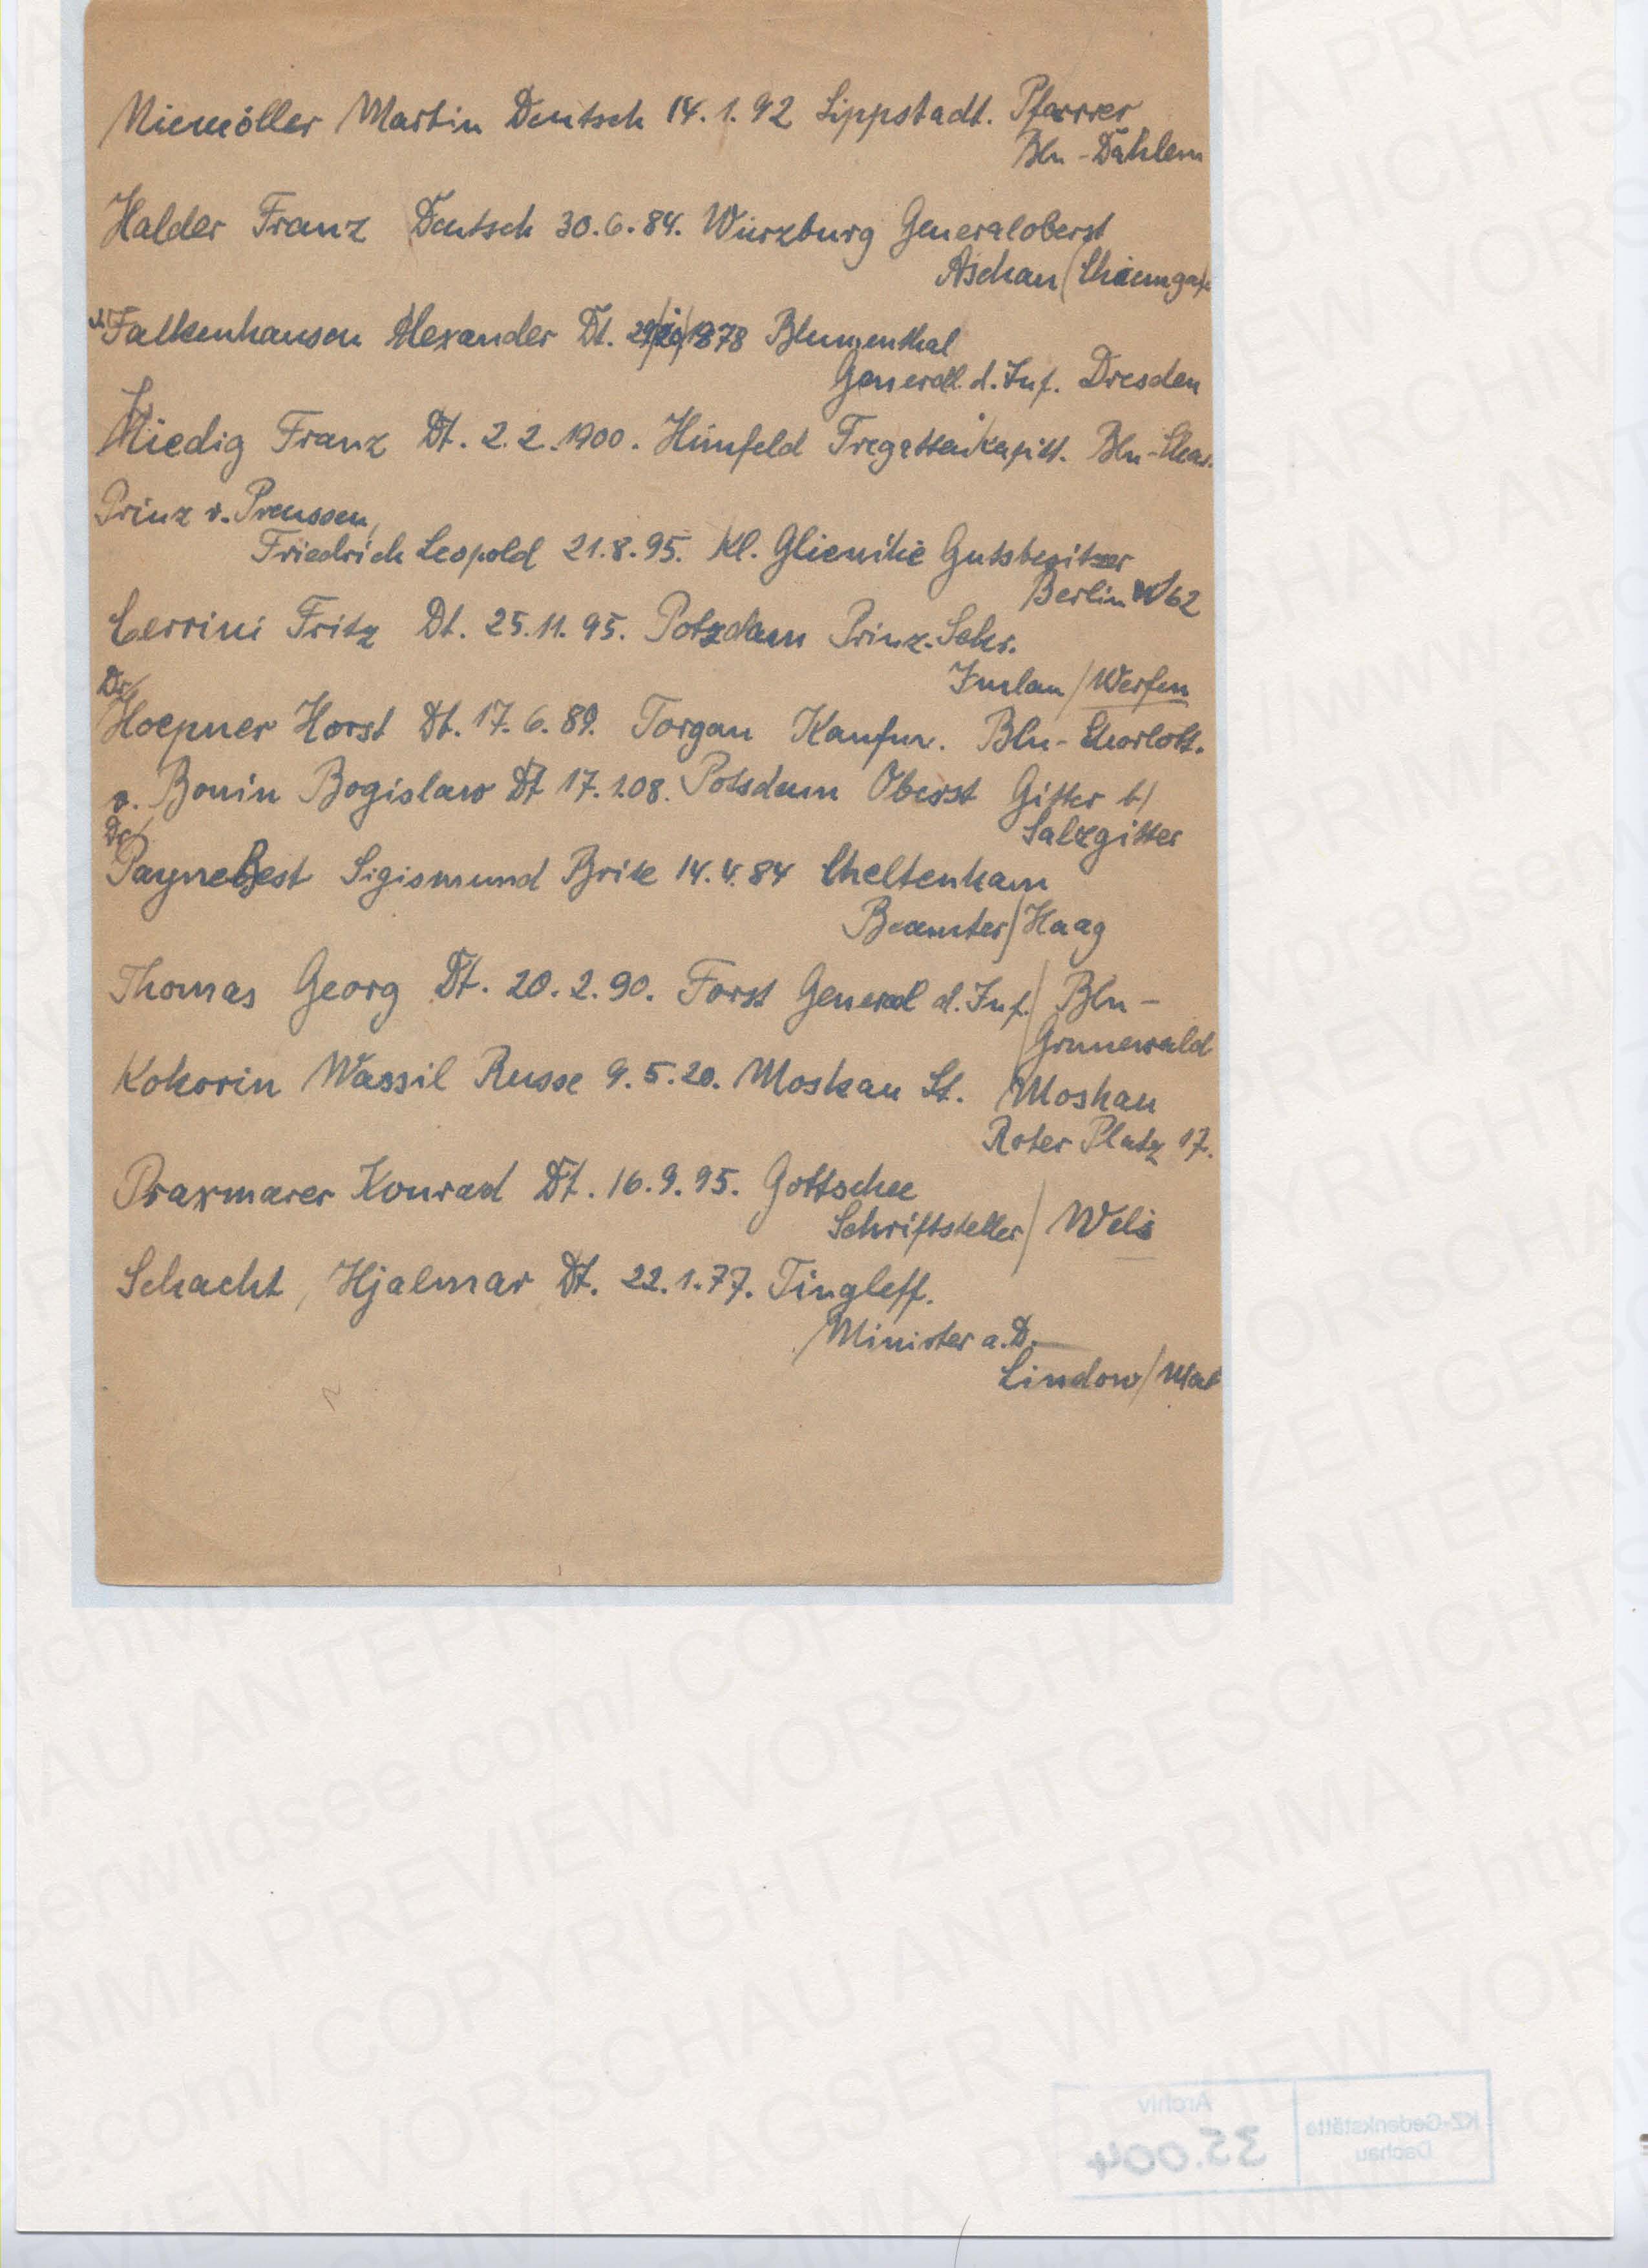 Niemöller Martin Deutsch 14.1.92 Lippstadt. Pfarrer
Bln-Dahlem
Halder Franz Deutsch 30.6.84. Würzburg Generaloberst
Aschau (Chiemgau
v. Falkenhausen Alexander Dt. 1878 Blumenthal
General d. Inf. Dresden
Liedig Franz Dt. 2.2.1900. Hünfeld Fregattenkapitt. Bln-Char.
Prinz v. Preussen,
Friedrich Leopold 21.8.95. Kl. Glienike Gutsbesitzer
Berlin W62
Cerrini Fritz Dt. 25.11.95. Potzdam Prinz. Sekr.
Imlau / Werfen
Dr.
Hoepner Horst Dt. 17.6.89. Torgau Kaufm. Bln-Charlott.
v. Bonin Bogislaw Dt 17.1.08. Potsdam Oberst Gitter b/
Salzgitter
Dr.
Payne Best Sigismund Brite 14.4.84 Cheltenham
Beamter / Haag
Thomas Georg Dt. 20.2.90. Forst General d. Inf. / Bln-
Grunewald
Kokorin Wassil Russe 9.5.20. Moskau Lt. Moskau
Roter Platz 17.
Praxmarer Konrad Dt. 16.9.95. Gottschee
Schriftsteller / Wels
Schacht, Hjalmar Dt. 22.1.77. Tingleff.
Minister a.D.
Lindow / Mark
KZ-Gedenkstätte
Dachau
Archiv
35.004